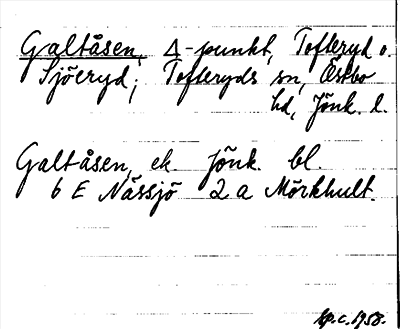 Galtåsen, Δ-punkt, Tofteryd o.
Sjöeryd; Tofteryds sn, Östbo
hd, Jönk. l.
Galtåsen, ek. Jönk. bl.
6 E Nässjö 2a Mörkhult.
sp.c. 1958.